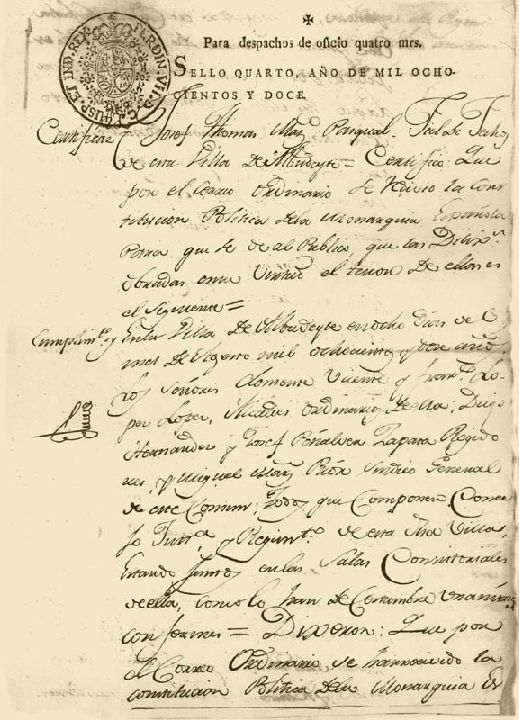 ✠
Para despachos de oficio quatro mrs.
SELLO QUARTO, AÑO DE MIL OCHO-
CIENTOS Y DOCE.
FERDIN. VII. D. G. HISP. ET IND. REX
Josef Thomas Mar.z Pasqual. Fiel de Fechos
de esta Villa de Albudeyte = Certifico: Que
por el Correo Ordinario se recivio la Cons
titucion Politica de la Monarquia Española
Para que se de al Publico, que las Dilix.s
obradas en su virtud el tenor de ellas es
el siguiente =
Cumplim.to
En la Villa de Albudeyte en ocho dias de el
mes de Agosto mil ochocientos y doce años
los Señores Clemente Vicente y Fran.co Lo-
pez Lopez, Alcaldes ordinarios de ella: Diego
Hernandez y Josef Peñalver Zapata Regido
res, y Miguel Mar.z Sindico General
de este Comun; todos que componen Conce
jo Just.a y Regim.to de esta dha Villa,
estando juntos en las Salas Consistoriales
de ella, como lo han de Costumbre unanimes
conformes = Dixeron: Que por
el Correo Ordinario se ha recivido la
constitucion Politica de la Monarquia Es